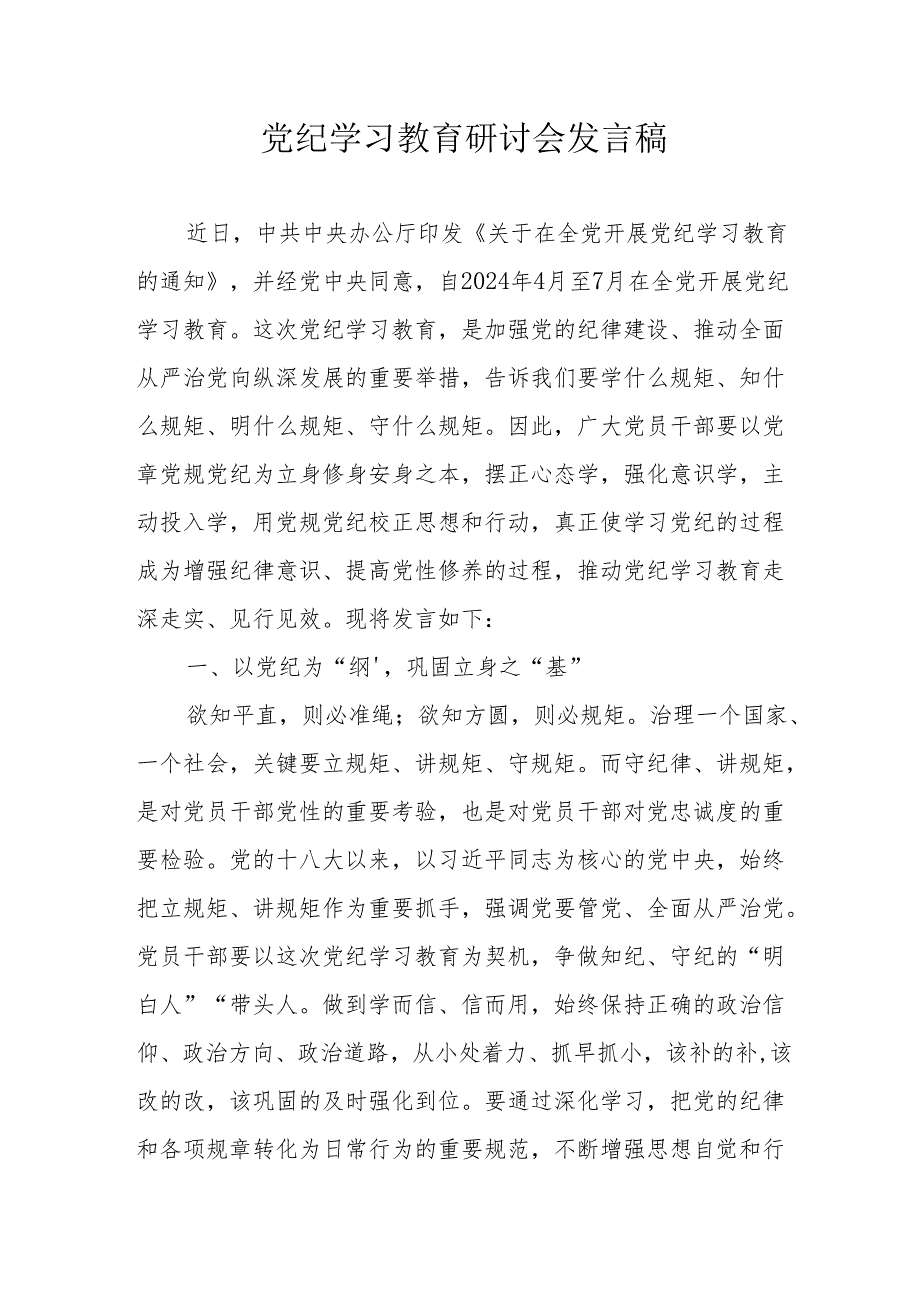 党纪学习教育研讨会发言稿
近日，中共中央办公厅印发《关于在全党开展党纪学习教育
的通知》，并经党中央同意，自2024年4月至7月在全党开展党纪
学习教育。这次党纪学习教育，是加强党的纪律建设、推动全面
从严治党向纵深发展的重要举措，告诉我们要学什么规矩、知什
么规矩、明什么规矩、守什么规矩。因此，广大党员干部要以党
章党规党纪为立身修身安身之本，摆正心态学，强化意识学，主
动投入学，用党规党纪校正思想和行动，真正使学习党纪的过程
成为增强纪律意识、提高党性修养的过程，推动党纪学习教育走
深走实、见行见效。现将发言如下：
一、以党纪为“纲'，巩固立身之“基”
欲知平直，则必准绳；欲知方圆，则必规矩。治理一个国家、
一个社会，关键要立规矩、讲规矩、守规矩。而守纪律、讲规矩，
是对党员干部党性的重要考验，也是对党员干部对党忠诚度的重
要检验。党的十八大以来，以习近平同志为核心的党中央，始终
把立规矩、讲规矩作为重要抓手，强调党要管党、全面从严治党。
党员干部要以这次党纪学习教育为契机，争做知纪、守纪的“明
白人”“带头人。做到学而信、信而用，始终保持正确的政治信
仰、政治方向、政治道路，从小处着力、抓早抓小，该补的补,该
改的改，该巩固的及时强化到位。要通过深化学习，把党的纪律
和各项规章转化为日常行为的重要规范，不断增强思想自觉和行